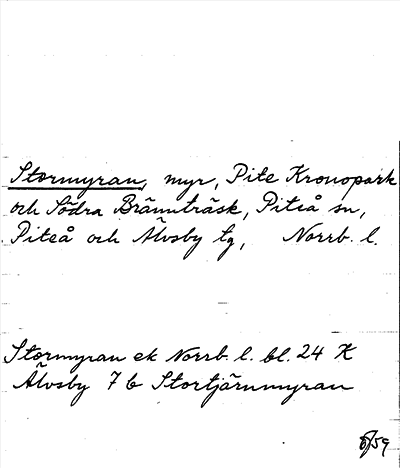 Stormyran, myr, Pite Kronopark
och Södra Brännträsk, Piteå sn,
Piteå och Älvsby tg, Norrb. l.
Stormyran ek Norrb. l. bl. 24 K
Älvsby 7 b Stortjärnmyran